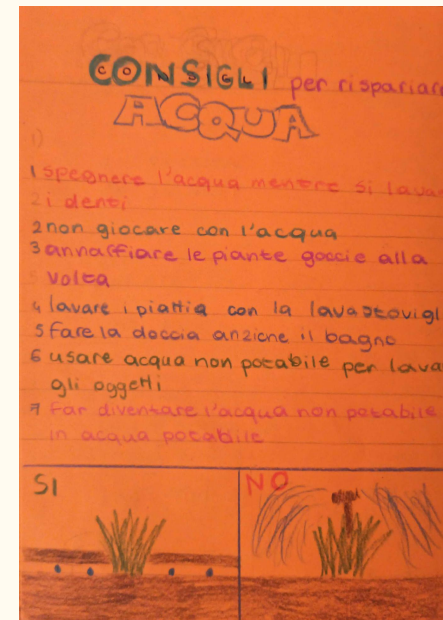 CONSIGLI per rispariar
ACQUA
1 spegnere l'acqua mentre si lava
i denti
2 non giocare con l'acqua
3 annaffiare le piante goccie alla
volta
4 lavare i piattia con la lavastovigl
5 fare la doccia anziche il bagno
6 usare acqua non potabile per lava
gli oggetti
7 far diventare l'acqua non potabile
in acqua potabile
SI
NO